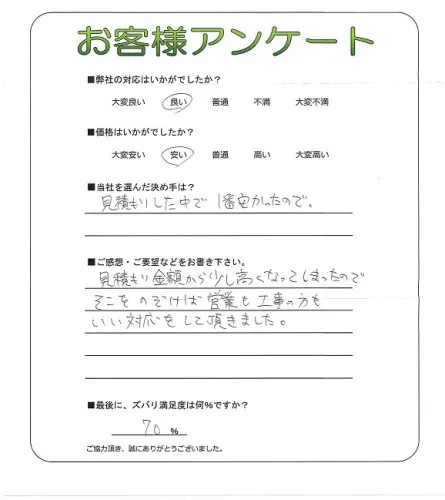 お客様アンケート
■弊社の対応はいかがでしたか?
大変良い 良い 普通 不満 大変不満
■価格はいかがでしたか?
大変安い 安い 普通 高い 大変高い
■当社を選んだ決め手は?
見積もりした中で1番安かったので。
■ご感想・ご要望などをお書き下さい。
見積もり金額から少し高くなってしまったので
そこをのぞけば営業も工事の方も
いい対応をして頂きました。
■最後に、ズバリ満足度は何%ですか?
70 %
ご協力頂き、誠にありがとうございました。